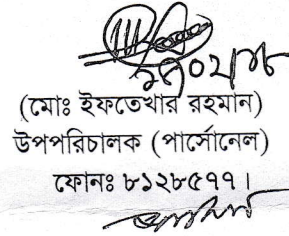 (মোঃ ইফতেখার রহমান)
উপপরিচালক (পার্সোনেল)
ফোনঃ ৮১২৮৫৭৭।